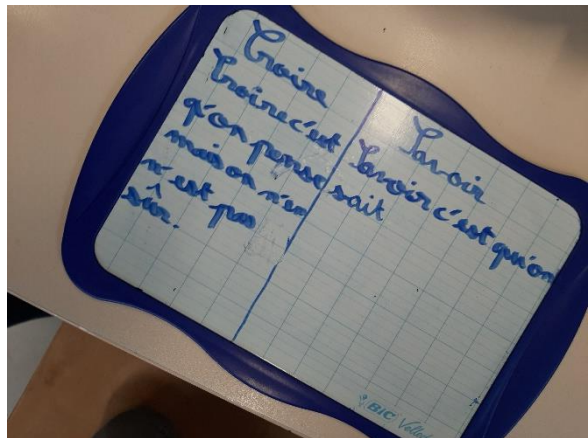 Croire
Croire c'est
qu'on pense
mais on n'en
n'est pas
sûr.
Savoir
Savoir c'est qu'on
sait
BIC Velle